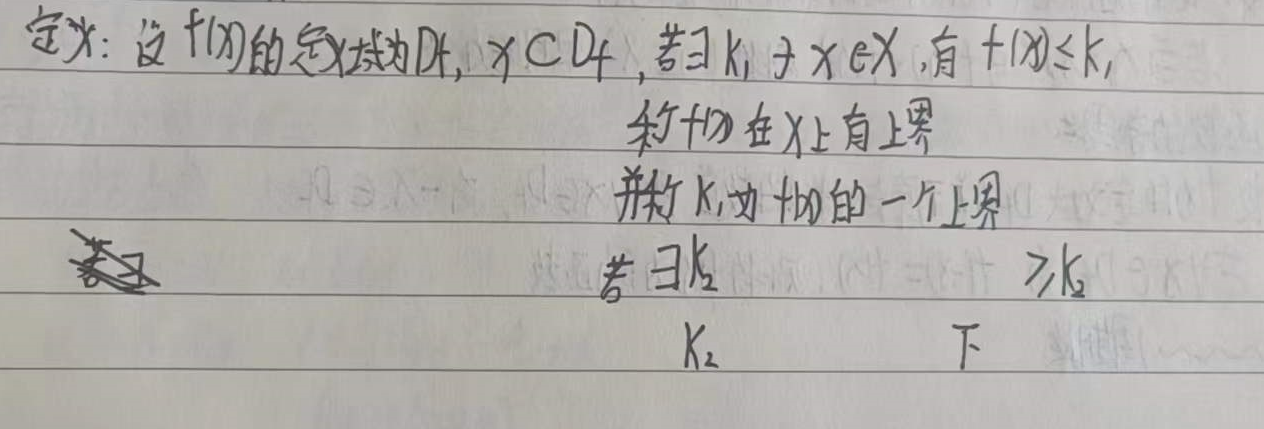 定义: 设 f(x)的定义域为Df, X⊂Df, 若∃K₁ ∀ x∈X,有 f(x)≤K₁
称f(x) 在X上有上界
并称 K₁为 f(x)的一个上界
若 ∃K₂ ≥K₂
K₂ 下